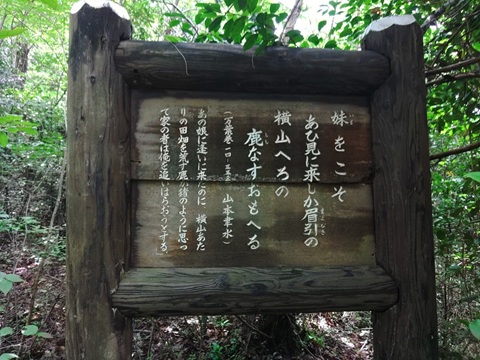 妹をこそ
あひ見に来しか眉引の
横山へろの
鹿なすおもへる
(万葉巻一四・三五三一 山本幸水)
あの娘に逢いに来たのに、横山あた
りの田畑を荒す鹿か猪のように思っ
て家の者は俺を追いはらおうとする。